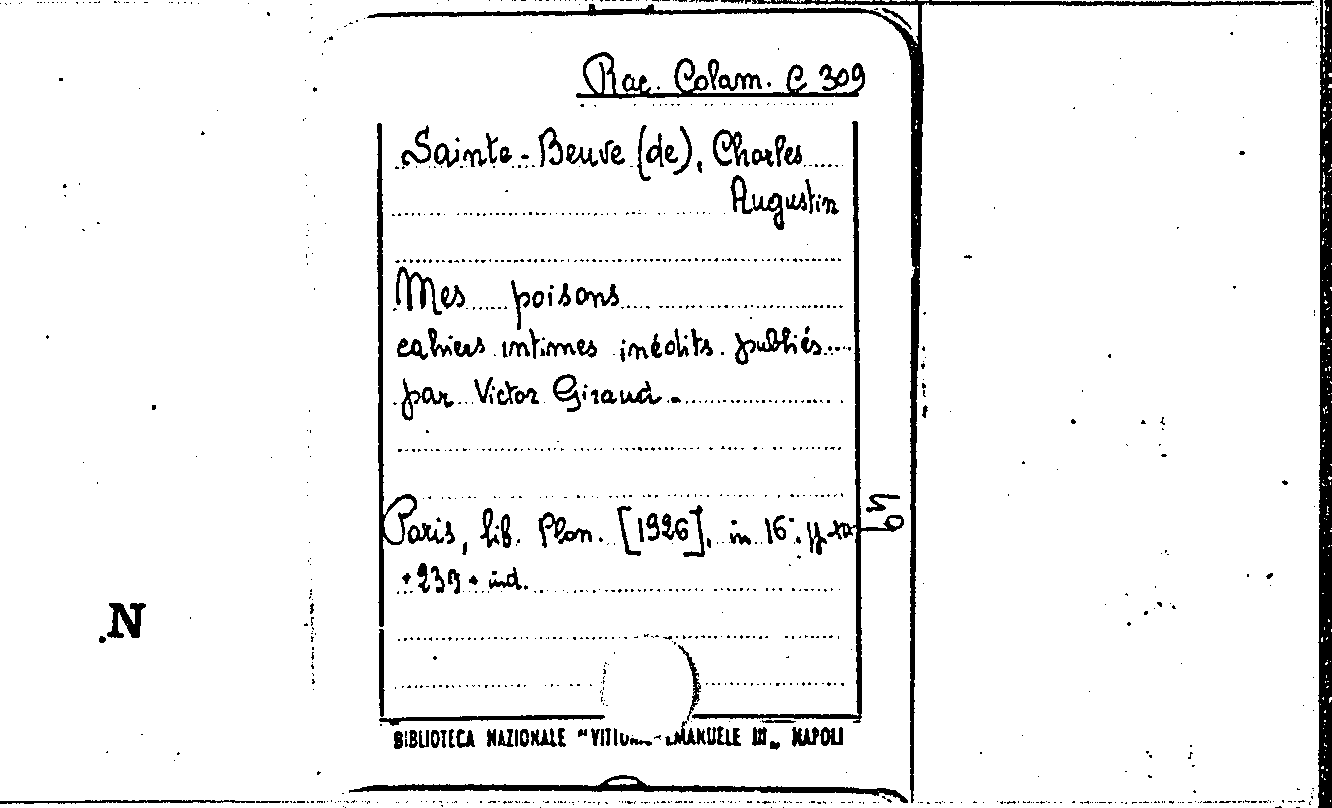 Rac. Colam. C 309
Sainte-Beuve (de), Charles
Augustin
Mes poisons
cahiers intimes inédits publiés
par Victor Giraud.
Paris, lib. Plon. [1926], in 16°. pp.
+ ind.
BIBLIOTECA NAZIONALE "VITTORIO EMANUELE III„ NAPOLI
N